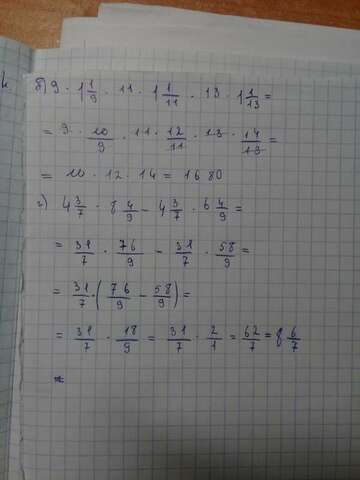 б) 9 · 1 1/9 · 11 · 1 1/11 · 13 · 1 1/13 =
= 9 · 10/9 · 11 · 12/11 · 13 · 14/13 =
= 10 · 12 · 14 = 1680
г) 4 3/7 · 8 4/9 - 4 3/7 · 6 4/9 =
= 31/7 · 76/9 - 31/7 · 58/9 =
= 31/7 · (76/9 - 58/9) =
= 31/7 · 18/9 = 31/7 · 2/1 = 62/7 = 8 6/7
=